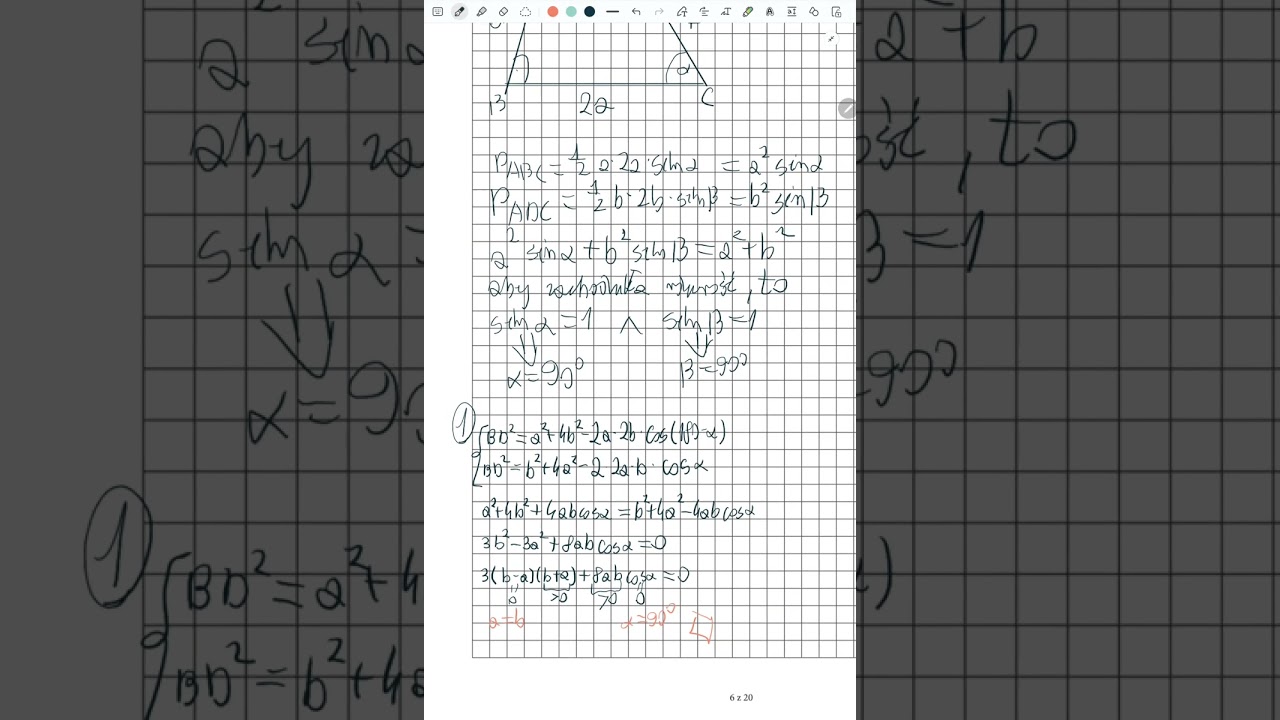 B
2a
C
α
P_ABC = 1/2 a·2a·sinα = a² sinα
P_ADC = 1/2 b·2b·sinβ = b² sinβ
a² sinα + b² sinβ = a² + b²
aby zachodziła równość, to
sinα = 1 ∧ sinβ = 1
α = 90° β = 90°
①
BD² = a² + 4b² - 2a·2b·cos(180-α)
BD² = b² + 4a² - 2·2a·b·cosα
a² + 4b² + 4abcosα = b² + 4a² - 4abcosα
3b² - 3a² + 8abcosα = 0
3(b-a)(b+a) + 8abcosα = 0
0 >0 >0 0
a=b α=90°
6 z 20